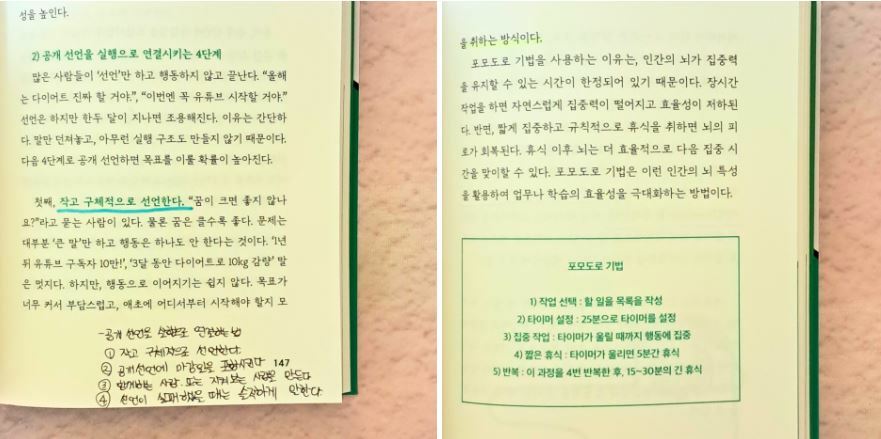 성을 높인다.
2) 공개 선언을 실행으로 연결시키는 4단계
많은 사람들이 ‘선언’만 하고 행동하지 않고 끝난다. “올해
는 다이어트 진짜 할 거야.”, “이번엔 꼭 유튜브 시작할 거야.”
선언은 하지만 한두 달이 지나면 조용해진다. 이유는 간단하
다. 말만 던져놓고, 아무런 실행 구조도 만들지 않기 때문이다.
다음 4단계로 공개 선언하면 목표를 이룰 확률이 높아진다.
첫째, 작고 구체적으로 선언한다. “꿈이 크면 좋지 않나
요?”라고 묻는 사람이 있다. 물론 꿈은 클수록 좋다. 문제는
대부분 ‘큰 말’만 하고 행동은 하나도 안 한다는 것이다. ‘1년
뒤 유튜브 구독자 10만!’, ‘3달 동안 다이어트로 10kg 감량’ 말
은 멋지다. 하지만, 행동으로 이어지기는 쉽지 않다. 목표가
너무 커서 부담스럽고, 애초에 어디서부터 시작해야 할지 모
-공개 선언을 실행으로 연결하는 법
① 작고 구체적으로 선언한다
② 공개선언에 마감일을 포함시킨다
147
③ 함께하는 사람 또는 지켜보는 사람을 만든다
④ 선언이 실패했을 때는 솔직하게 말한다
을 취하는 방식이다.
포모도로 기법을 사용하는 이유는, 인간의 뇌가 집중력
을 유지할 수 있는 시간이 한정되어 있기 때문이다. 장시간
작업을 하면 자연스럽게 집중력이 떨어지고 효율성이 저하된
다. 반면, 짧게 집중하고 규칙적으로 휴식을 취하면 뇌의 피
로가 회복된다. 휴식 이후 뇌는 더 효율적으로 다음 집중 시
간을 맞이할 수 있다. 포모도로 기법은 이런 인간의 뇌 특성
을 활용하여 업무나 학습의 효율성을 극대화하는 방법이다.
포모도로 기법
1) 작업 선택 : 할 일을 목록을 작성
2) 타이머 설정 : 25분으로 타이머를 설정
3) 집중 작업 : 타이머가 울릴 때까지 행동에 집중
4) 짧은 휴식 : 타이머가 울리면 5분간 휴식
5) 반복 : 이 과정을 4번 반복한 후, 15~30분의 긴 휴식